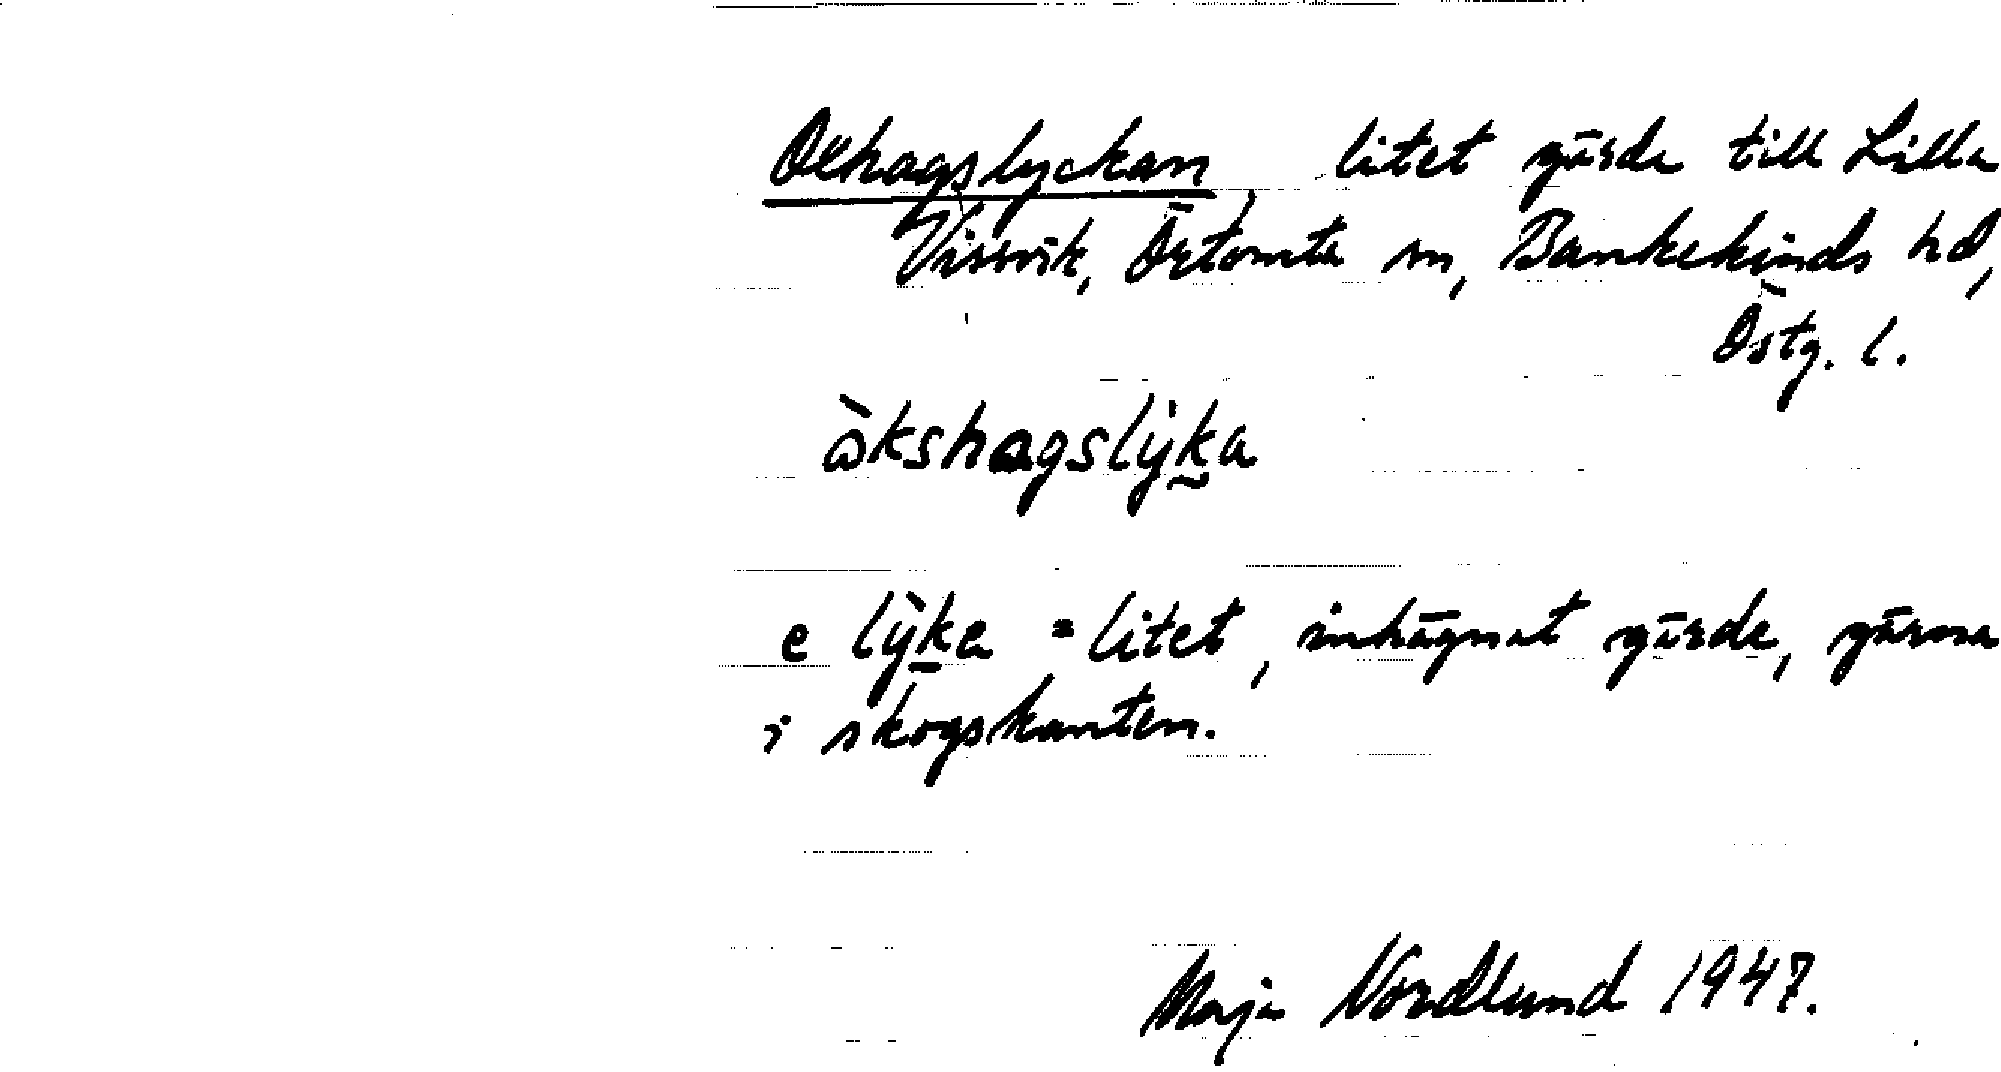 Oxhagslyckan, litet gärde till Lilla
Vissvik, Örtomta sn, Bankekinds hd,
Östg. l.
òkshagslỳka
e lỳka = litet, inhägnat gärde, gärna
i skogskanten.
Maja Nordlund 1947.